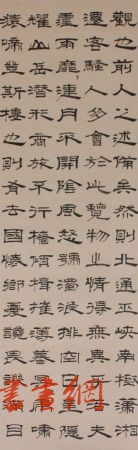 觀也前人之述備矣然則北通巫峽南極瀟湘
遷客騷人多會於此覽物之情得無異乎若夫
霪雨霏霏連月不開陰風怒號濁浪排空日星隱
耀山岳潛形商旅不行檣傾楫摧薄暮冥冥虎嘯
猿啼登斯樓也則有去國懷鄉憂讒畏譏滿目
書畫網